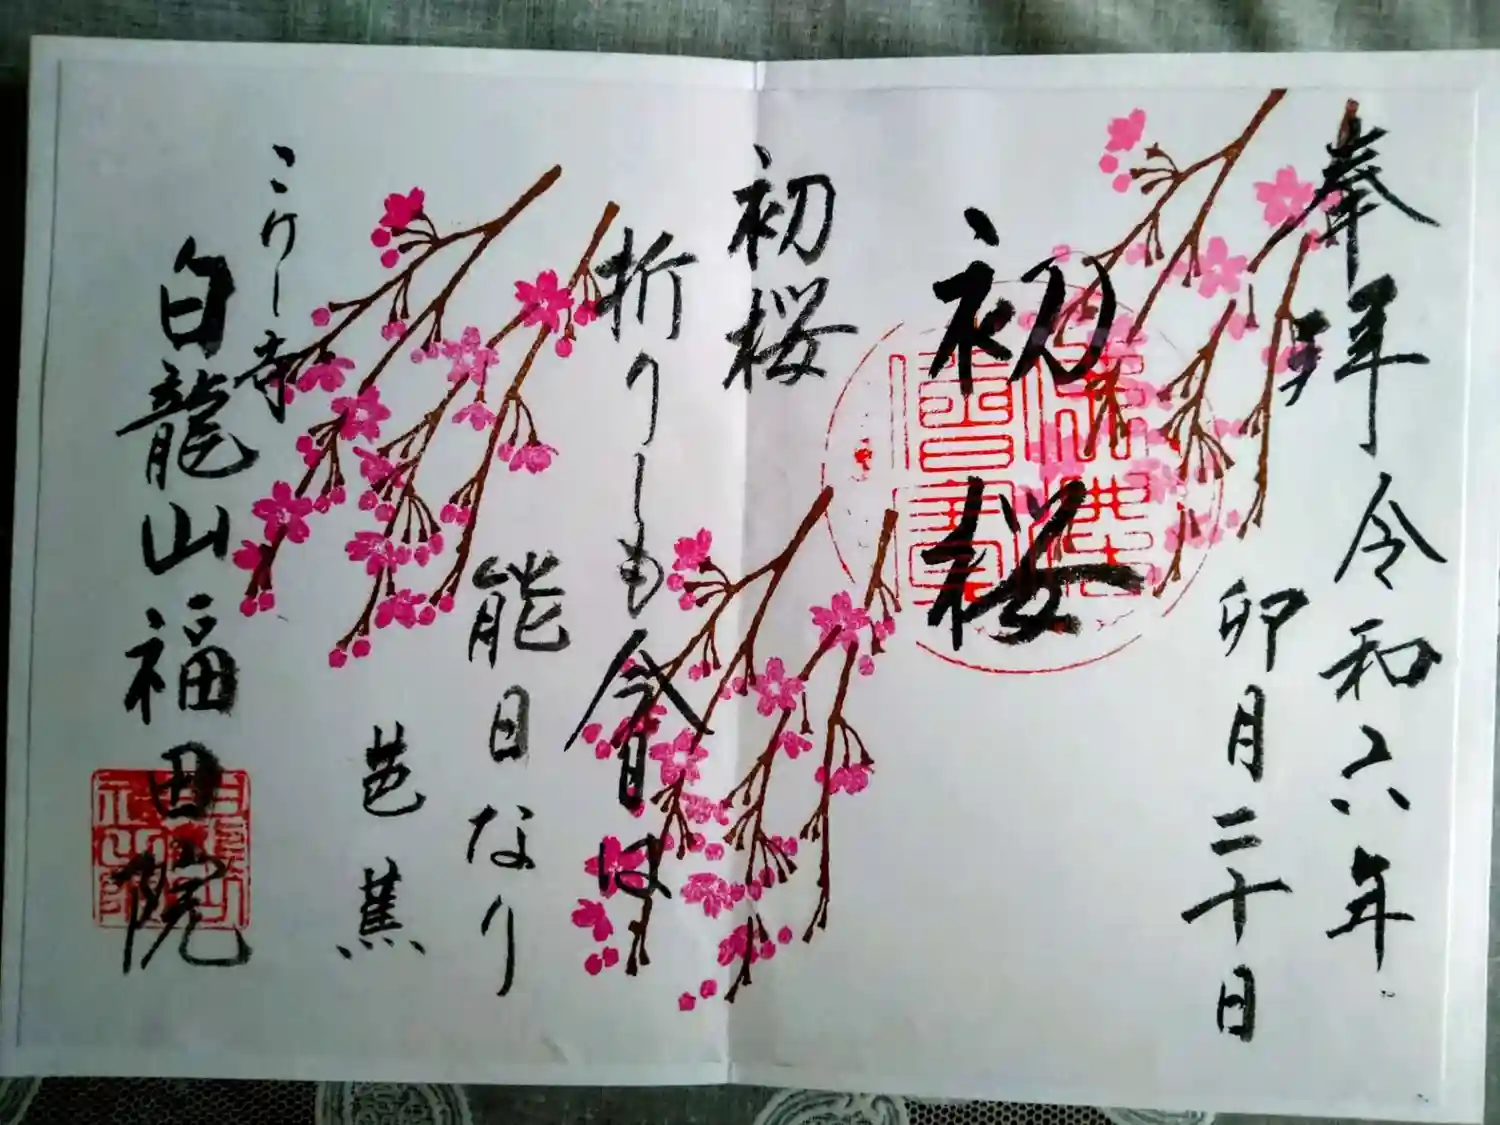 奉拝 令和六年
卯月二十日
初桜
初桜
折りしも今日は
能日なり
芭蕉
こけし寺
白龍山福田院